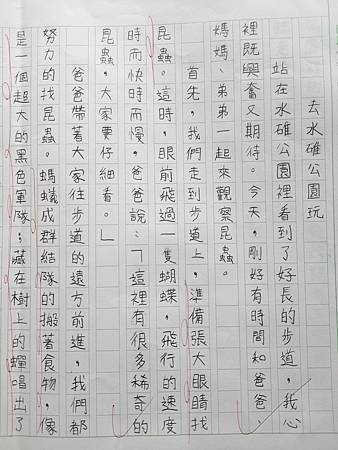 去水碓公園玩
站在水碓公園裡看到了好長的步道，我心
裡既興奮又期待。今天，剛好有時間和爸爸、
媽媽、弟弟一起來觀察昆蟲。
首先，我們走到步道上，準備張大眼睛找
昆蟲。這時，眼前飛過一隻蝴蝶，飛行的速度
時而快時而慢，爸爸說：「這裡有很多稀奇的
昆蟲，大家要仔細看。」
爸爸帶著大家往步道的遠方前進，我們都
努力的找昆蟲。螞蟻成群結隊的搬著食物，像
是一個超大的黑色軍隊；藏在樹上的蟬唱出了